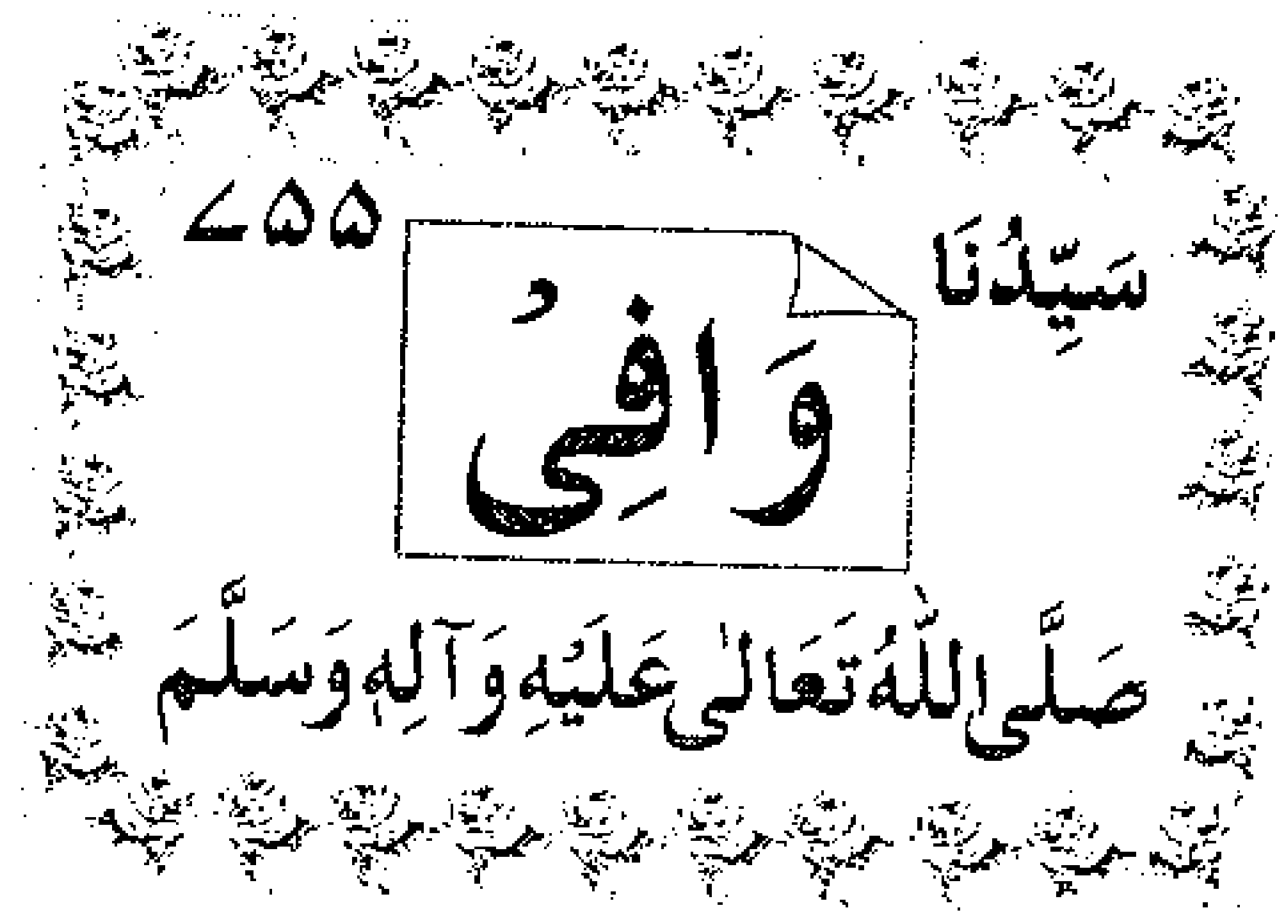 سَيِّدُنَا ۷۵۵
وَافِیُ
صَلَّی اللّٰهُ تَعَالٰی عَلَيْهِ وَآلِهٖ وَسَلَّمَ